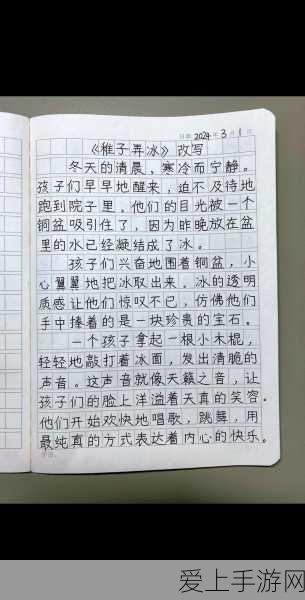 日期: 2024年3月1日
《稚子弄冰》改写
冬天的清晨，寒冷而宁静。
孩子们早早地醒来，迫不及待地
跑到院子里。他们的目光被一个
铜盆吸引住了，因为昨晚放在盆
里的水已经凝结成了冰。
孩子们兴奋地围着铜盆，小
心翼翼地把冰取出来。冰的透明
质感让他们惊叹不已，仿佛他们
手中捧着的是一块珍贵的宝石。
一个孩子拿起一根小木棍，
轻轻地敲打着冰面，发出清脆的
声音。这声音就像天籁之音，让
孩子们的脸上洋溢着天真的笑容。
他们开始欢快地唱歌，跳舞，用
最纯真的方式表达着内心的快乐。
爱上手游网